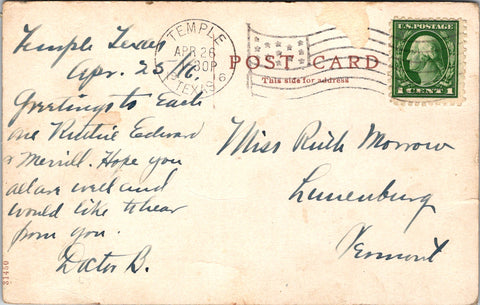 Temple Texas
Apr. 25 16.
Greetings to Each
one Ruthie Edward
& Merrill. Hope you
all are well and
would like to hear
from you.
B.
31450
TEMPLE
APR 26
30P
6
TEXAS
POST CARD
This side for address
U.S. POSTAGE
1 CENT 1
Miss Ruth Morrow
Lunenburg
Vermont